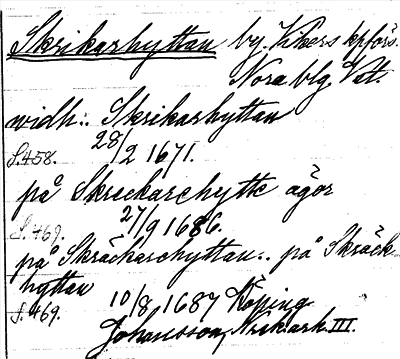 Skrikarhyttan by, Vikers kpförs.
Nora blg. Vstm.
widh:. Skrikarhyttan
S. 458. 28/2 1671.
på Skreckarehytte ägor
S. 469. 27/9 1686.
på Skräckarehyttan:. på Skräck-
hyttan
S. 469. 10/8 1687 Köping
Johansson, Norask. ark. III.